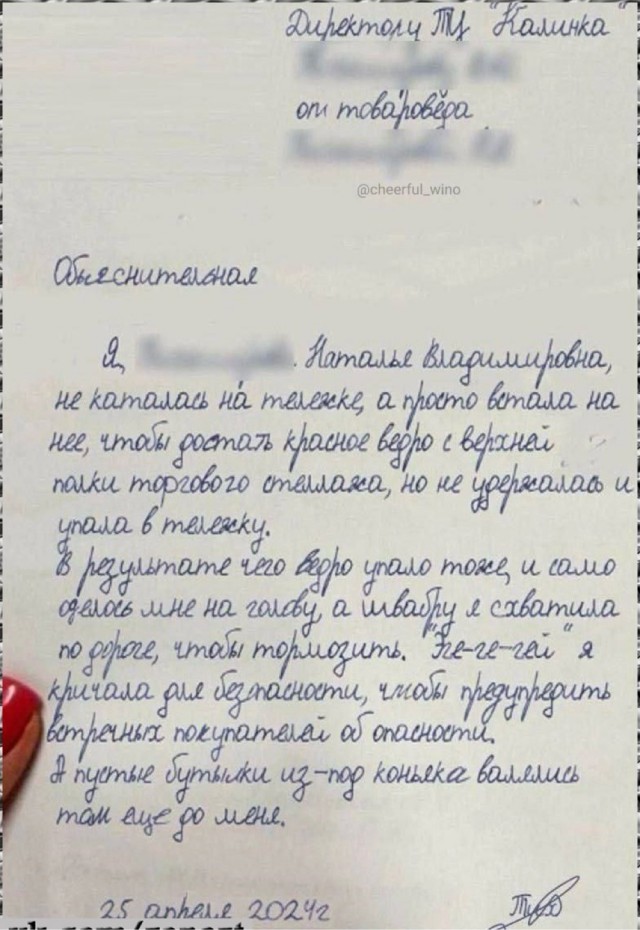 Директору ТЦ "Калинка"
от товароведа
@cheerful_wino
Объяснительная
Я, Наталья Владимировна,
не каталась на тележке, а просто встала на
нее, чтобы достать красное ведро с верхней
полки торгового стеллажа, но не удержалась и
упала в тележку.
В результате чего ведро упало тоже, и само
оделось мне на голову, а швабру я схватила
по дороге, чтобы тормозить. "Ге-ге-гей" я
кричала для безопасности, чтобы предупредить
встречных покупателей об опасности.
А пустые бутылки из-под коньяка валялись
там еще до меня.
25 апреля 2024г